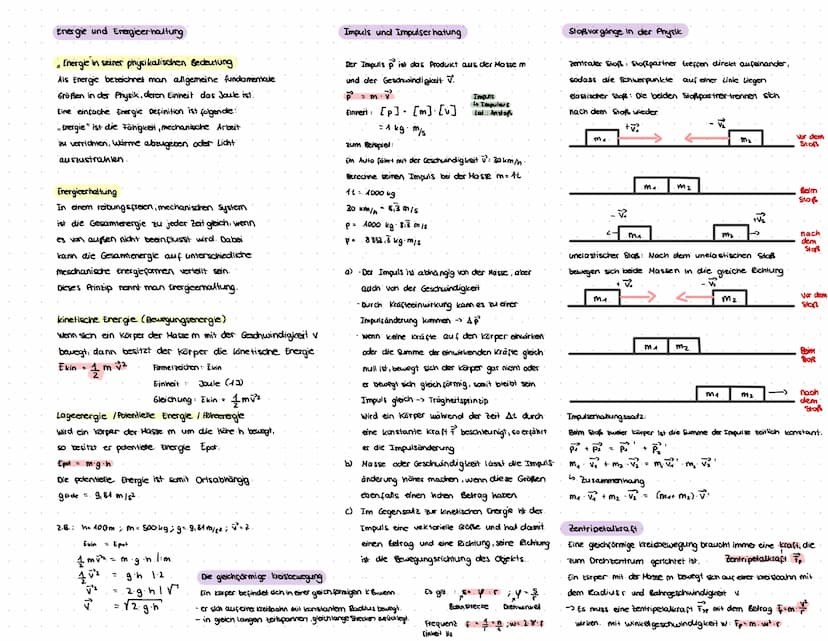 Energie und Energieerhaltung
„Energie" in seiner physikalischen Bedeutung
Als Energie bezeichnet man allgemeine fundamentale
Größen in der Physik, deren Einheit das Joule ist.
Eine einfache Energie Definition ist folgende:
„Energie" ist die Fähigkeit, mechanische Arbeit
zu verrichten, Wärme abzugeben oder Licht
auszustrahlen.
Energieerhaltung
In einem reibungsfreien, mechanischen System
ist die Gesamtenergie zu jeder Zeit gleich, wenn
es von außen nicht beeinflusst wird. Dabei
kann die Gesamtenergie auf unterschiedliche
mechanische Energieformen verteilt sein.
Dieses Prinzip nennt man Energieerhaltung.
kinetische Energie (Bewegungsenergie)
Wenn sich ein Körper der Masse m mit der Geschwindigkeit v
bewegt, dann besitzt der Körper die kinetische Energie
Ekin = 1/2 m v⃗² Formelzeichen: Ekin
Einheit: Joule (1J)
Gleichung: Ekin = 1/2 m v⃗²
Lageenergie / Potentielle Energie / Höhenergie
Wird ein Körper der Masse m um die Höhe h bewegt,
so besitzt er potentielle Energie Epot.
Epot = m · g · h
Die potentielle Energie ist somit Ortsabhängig
gErde = 9,81 m/s²
z.B.: h = 100m ; m = 500kg ; g = 9,81 m/s² ; v⃗ = ?
Ekin = Epot
1/2 m v⃗² = m · g · h | : m
1/2 v⃗² = g · h | · 2
v⃗² = 2 · g · h | √
v⃗ = √2 · g · h
Die gleichförmige Kreisbewegung
Ein Körper befindet sich in einer gleichförmigen K. Bewegung
- er sich auf einer Kreisbahn mit konstantem Radius bewegt.
- in gleich langen Zeitspannen, gleichlange Strecken zurücklegt.
Es gilt: s = φ · r ; φ = s/r
Bahnstrecke Drehwinkel
Frequenz f = 1/T = n/t ; ω = 2 π · f
Einheit Hz
Impuls und Impulserhatung
Der Impuls p⃗ ist das Produkt aus der Masse m
und der Geschwindigkeit v⃗.
p⃗ = m · v⃗
Impuls
Einheit: [p] = [m] · [v]
= 1 kg · m/s
zum Beispiel:
Ein Auto fährt mit der Geschwindigkeit v⃗: 30 km/h.
Berechne seinen Impuls bei der Masse m = 1t
1t = 1000 kg
30 km/h = 8,3 m/s
p = 1000 kg · 8,3 m/s
a) - Der Impuls ist abhängig von der Masse, aber
auch von der Geschwindigkeit
- Durch Krafteinwirkung kann es zu einer
Impulsänderung kommen → Δp⃗
- wenn keine Kräfte auf den Körper einwirken
oder die Summe der einwirkenden Kräfte gleich
null ist, bewegt sich der Körper gar nicht oder
er bewegt sich gleichförmig, somit bleibt sein
Impuls gleich → Trägheitsprinzip
Wird ein Körper während der Zeit Δt durch
eine konstante Kraft F⃗ beschleunigt, so erfährt
er die Impulsänderung
b) Masse oder Geschwindigkeit lässt die Impuls-
änderung höher machen, wenn diese Größen
ebenfalls einen hohen Betrag haben
c) Im Gegensatz zur kinetischen Energie ist der
Impuls eine vektorielle Größe und hat damit
einen Betrag und eine Richtung, seine Richtung
ist die Bewegungsrichtung des Objekts.
Stoßvorgänge in der Physik
zentraler Stoß: Stoßpartner treffen direkt aufeinander,
sodass die Schwerpunkte auf einer Linie liegen
elastischer Stoß: Die beiden Stoßpartner trennen sich
nach dem Stoß wieder
+v⃗₁ - v⃗₂
m₁ m₂
vor dem
Stoß
m₁ m₂
Beim
Stoß
- v⃗₁ +v⃗₂
m₁ m₂
nach
dem
Stoß
unelastischer Stoß: Nach dem unelastischen Stoß
bewegen sich beide Massen in die gleiche Richtung
+ v⃗₁ - v⃗₂
m₁ m₂
Vor dem
Stoß
m₁ m₂
Beim
Stoß
m₁ m₂
nach
dem
Stoß
Impulserhaltungssatz:
Beim Stoß zweier Körper ist die Summe der Impulse zeitlich konstant.
p₁⃗ + p₂⃗ = p₁⃗' + p₂⃗'
m₁ · v₁⃗ + m₂ · v₂⃗ = m₁ v₁⃗' · m₂ v₂⃗'
↳ Zusammenhang
m₁ · v₁⃗ + m₂ · v₂⃗ = (m₁ + m₂) · v⃗'
Zentripetalkraft
Eine gleichförmige Kreisbewegung braucht immer eine Kraft, die
zum Drehzentrum gerichtet ist. Zentripetalkraft
Ein Körper mit der Masse m bewegt sich auf einer Kreisbahn mit
dem Radius r und Bahngeschwindigkeit v
→ Es muss eine Zentripetalkraft mit dem Betrag F = m v²/r
wirken. mit Winkelgeschwindigkeit ω: = m · ω² · r